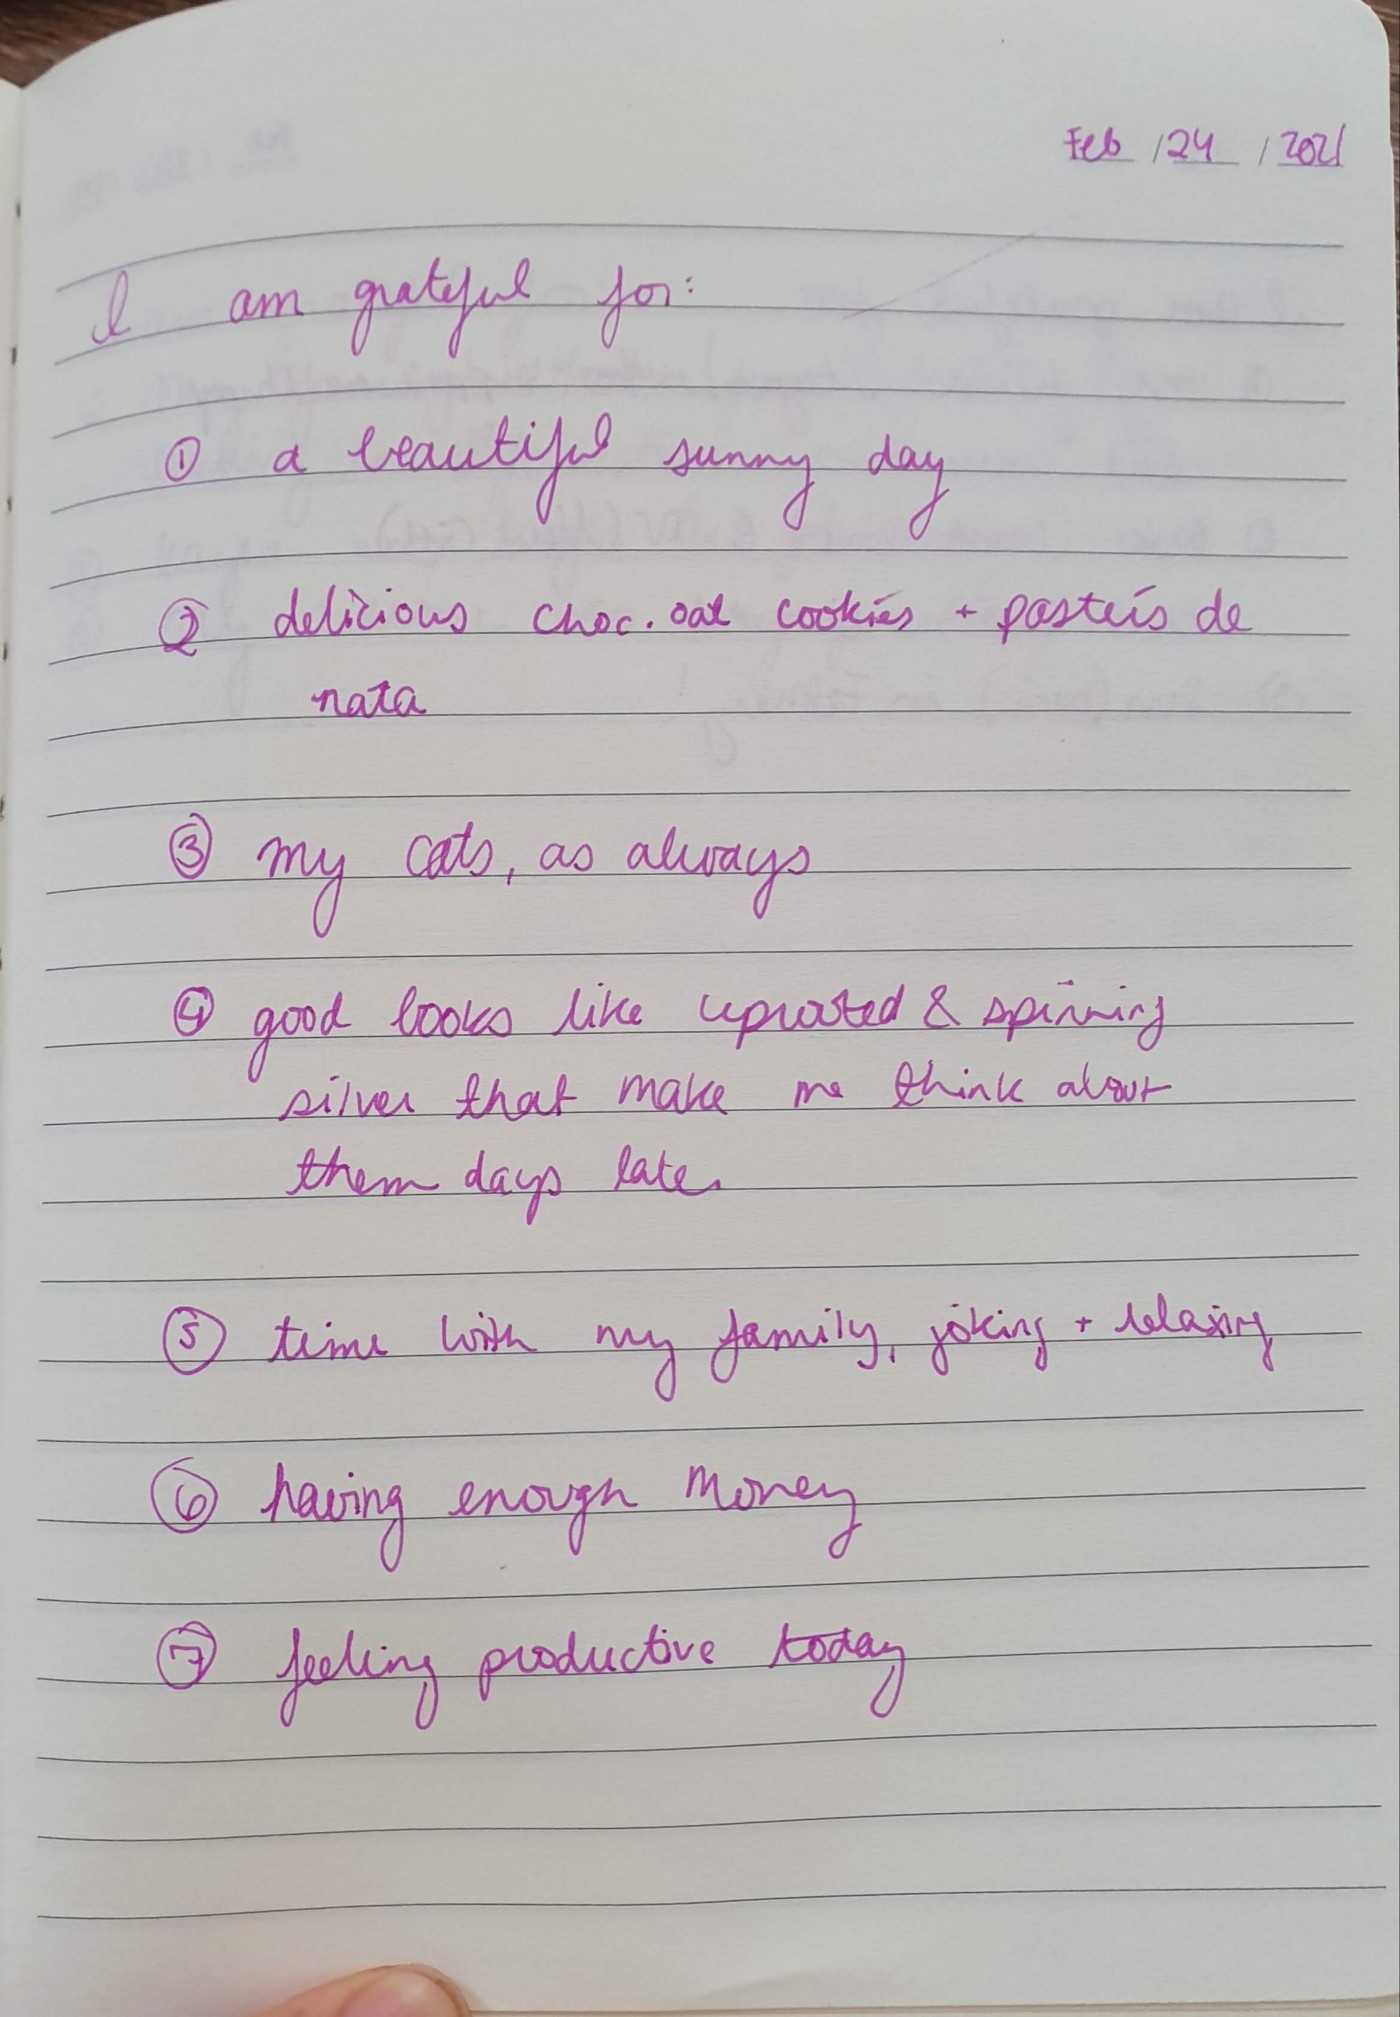 Feb / 24 / 2021
I am grateful for:
① a beautiful sunny day
② delicious choc. oat cookies + pasteis de
nata
③ my cats, as always
④ good books like uprooted & spinning
silver that make me think about
them days later
⑤ time with my family, joking + relaxing
⑥ having enough money
⑦ feeling productive today